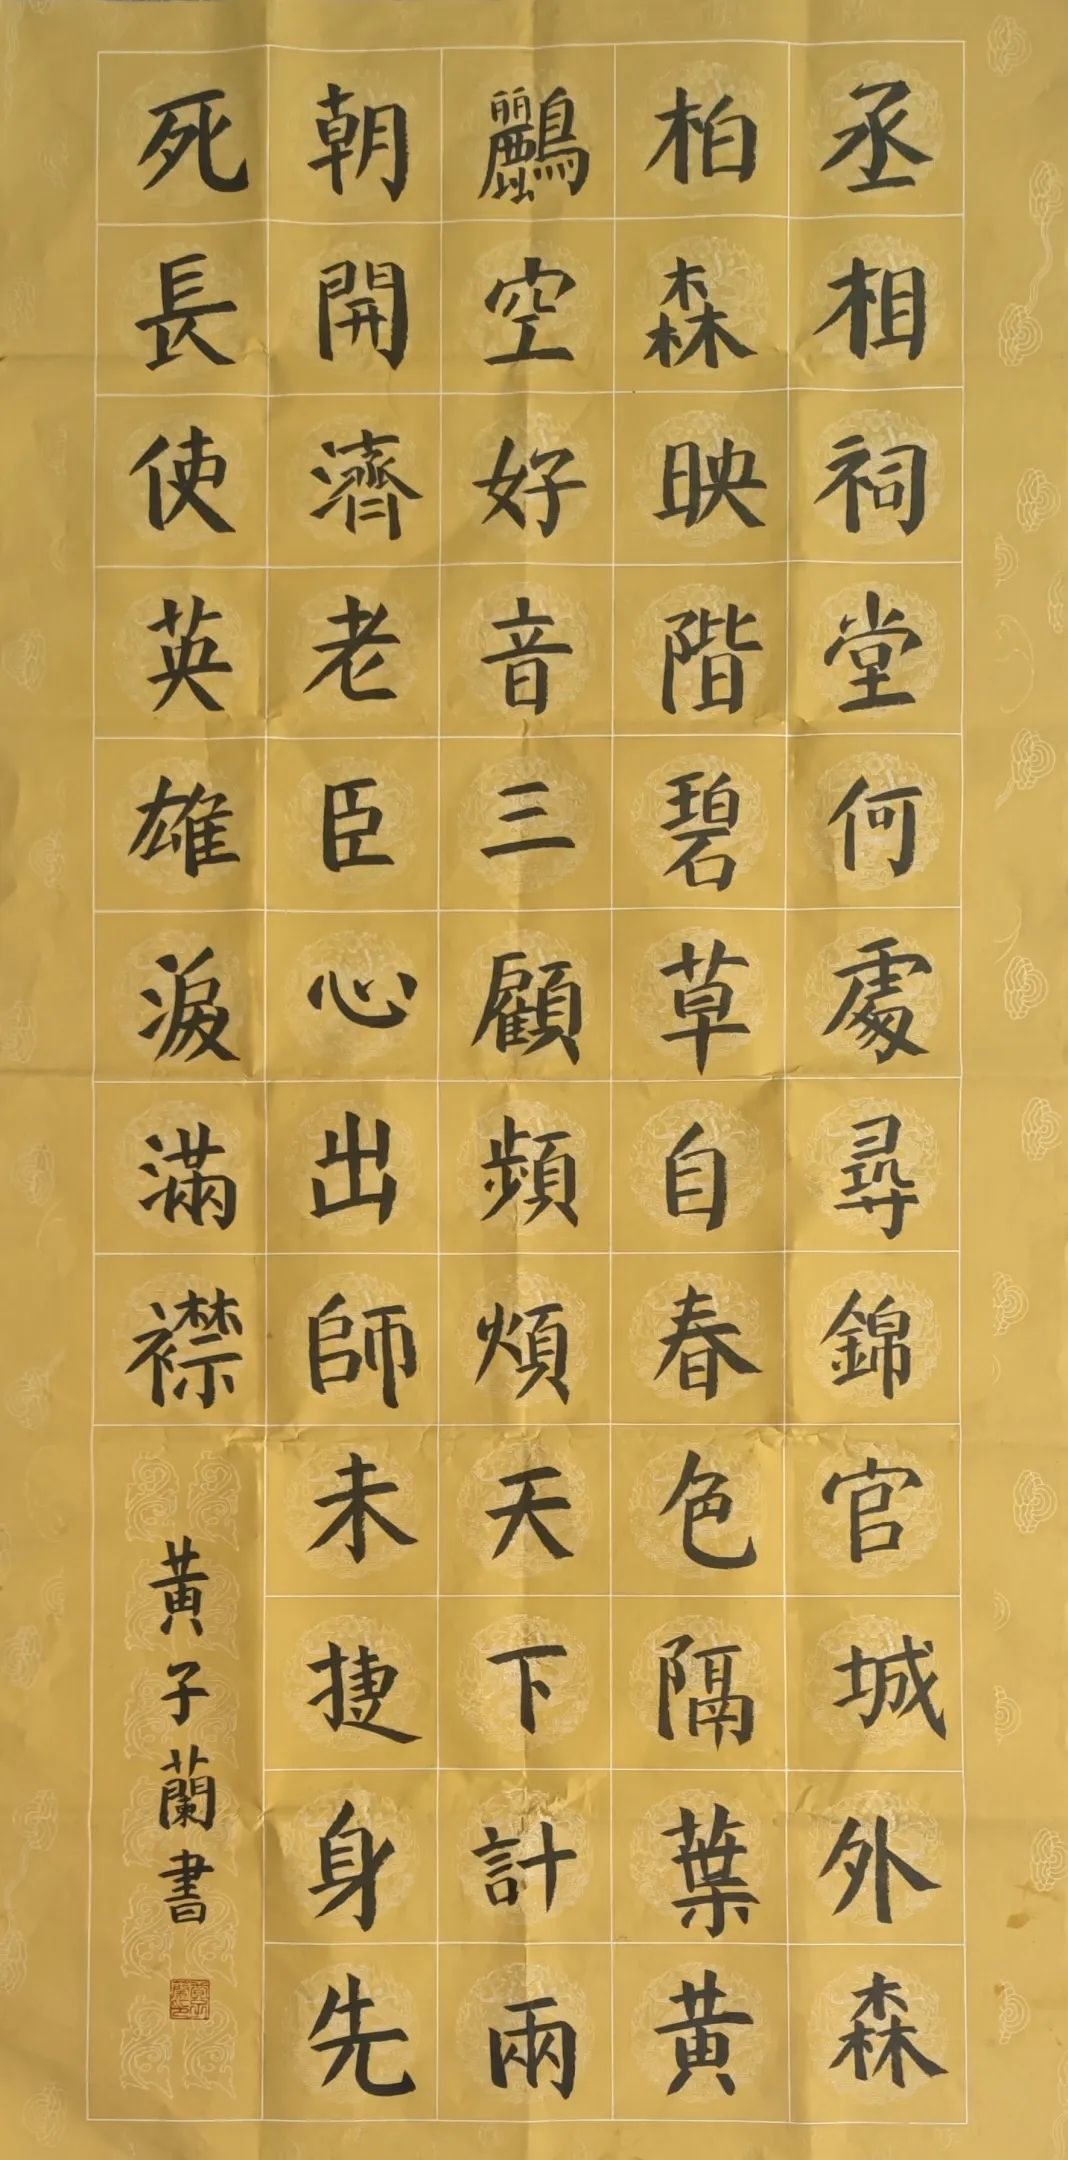 丞相祠堂何處尋錦官城外森
柏森映階碧草自春色隔葉黃
鸝空好音三顧頻煩天下計兩
朝開濟老臣心出師未捷身先
死長使英雄淚滿襟
黃子蘭書